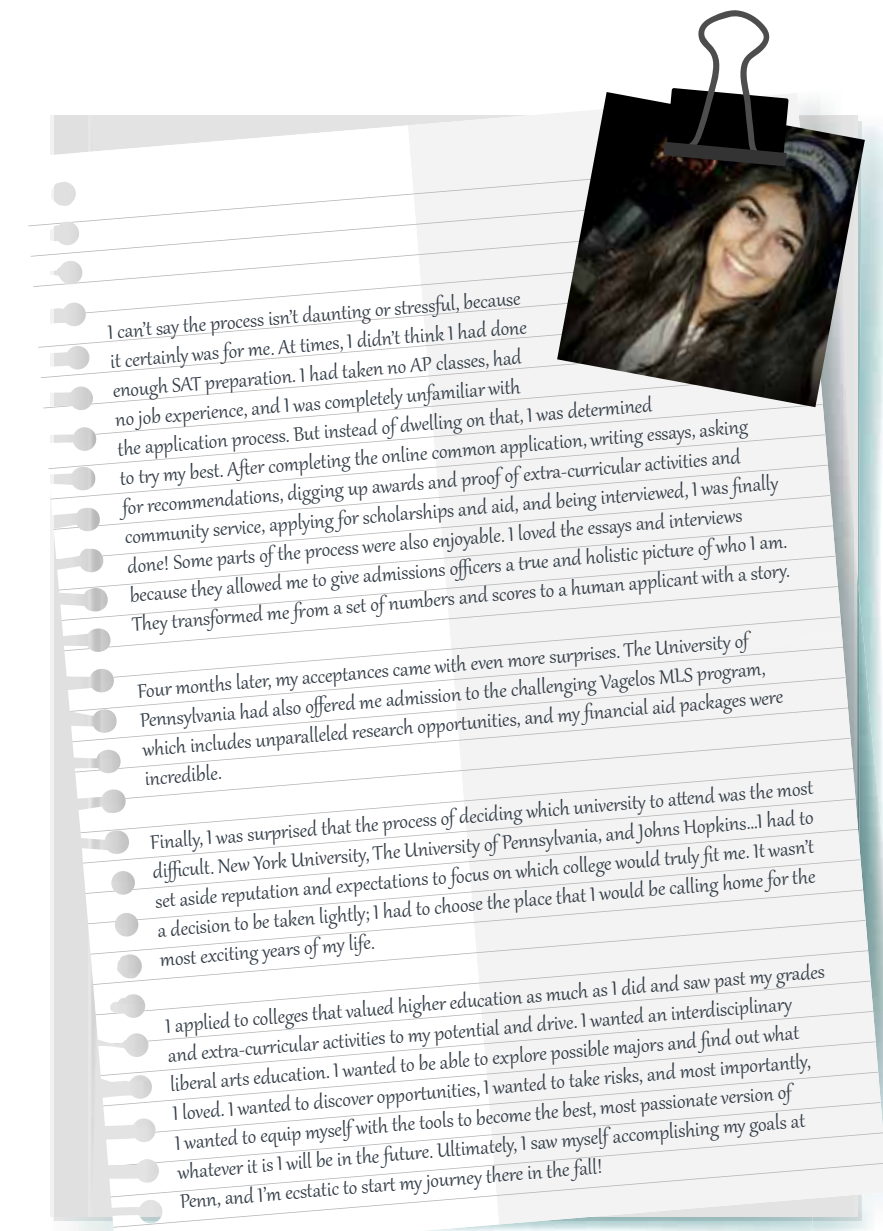 I can't say the process isn't daunting or stressful, because
it certainly was for me. At times, I didn't think I had done
enough SAT preparation. I had taken no AP classes, had
no job experience, and I was completely unfamiliar with
the application process. But instead of dwelling on that, I was determined
to try my best. After completing the online common application, writing essays, asking
for recommendations, digging up awards and proof of extra-curricular activities and
community service, applying for scholarships and aid, and being interviewed, I was finally
done! Some parts of the process were also enjoyable. I loved the essays and interviews
because they allowed me to give admissions officers a true and holistic picture of who I am.
They transformed me from a set of numbers and scores to a human applicant with a story.
Four months later, my acceptances came with even more surprises. The University of
Pennsylvania had also offered me admission to the challenging Vagelos MLS program,
which includes unparalleled research opportunities, and my financial aid packages were
incredible.
Finally, I was surprised that the process of deciding which university to attend was the most
difficult. New York University, The University of Pennsylvania, and Johns Hopkins...I had to
set aside reputation and expectations to focus on which college would truly fit me. It wasn't
a decision to be taken lightly; I had to choose the place that I would be calling home for the
most exciting years of my life.
I applied to colleges that valued higher education as much as I did and saw past my grades
and extra-curricular activities to my potential and drive. I wanted an interdisciplinary
liberal arts education. I wanted to be able to explore possible majors and find out what
I loved. I wanted to discover opportunities, I wanted to take risks, and most importantly,
I wanted to equip myself with the tools to become the best, most passionate version of
whatever it is I will be in the future. Ultimately, I saw myself accomplishing my goals at
Penn, and I'm ecstatic to start my journey there in the fall!